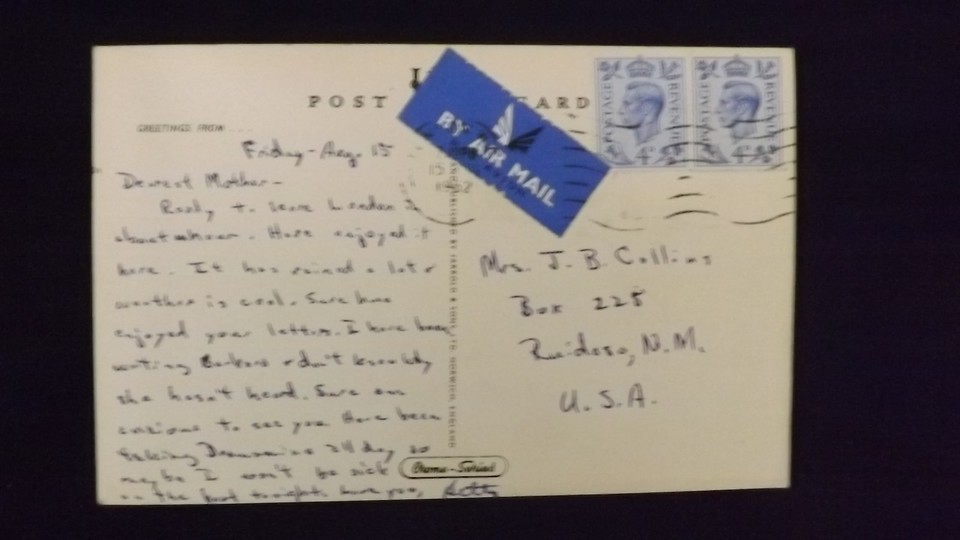 POST CARD
GREETINGS FROM ....
BY AIR MAIL
POSTAGE REVENUE
4D
POSTAGE REVENUE
4D
15
1952
Friday - Aug. 15
Dearest Mother -
Ready to leave London
about noon. Have enjoyed it
here. It has rained a lot &
weather is cool. Sure have
enjoyed your letters. I have been
writing Barbara & don't know why
she hasn't heard. Sure am
anxious to see you. Have been
taking Dramamine all day so
maybe I won't be sick
on the boat tonight. Love you, Betty
PUBLISHED BY JARROLD & SONS LTD. NORWICH, ENGLAND
Mrs. J. B. Collins
Box 225
Ruidoso, N.M.
U.S.A.